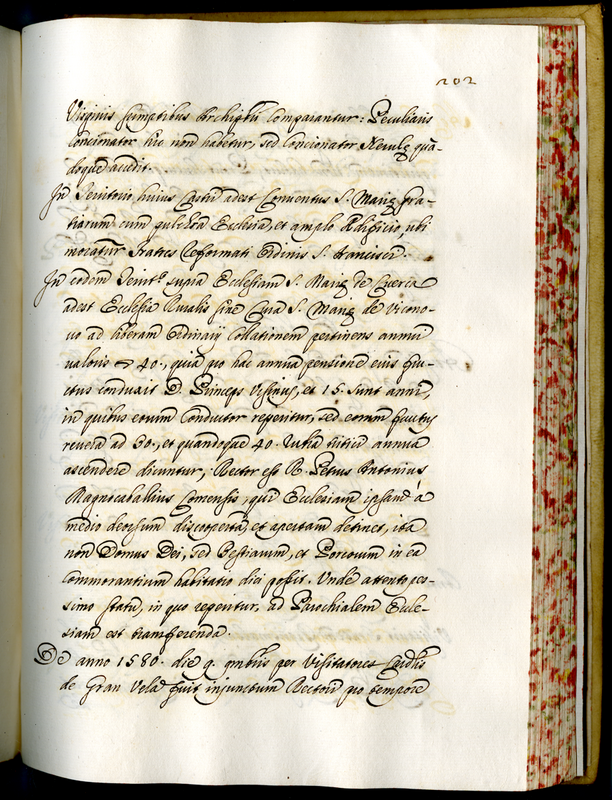 202
Virginis sumptibus Archiptri comparantur: Peculiaris
Concionator hic non habetur, sed Concionator Nerulę quã-
doque accedit.
In Territorio huius Castri adest Conventus S. Marię fra-
tiarum cum pulchra Ecclesia, et amplo Ædificio, ubi
morãtur Fratres Reformati Ordinis S. Francisci.
In eodem Territ.º supra Ecclesiam S. Marię de Cuerca
adest Ecclesia Ruralis sine Cura S. Marię de Vicono-
vo ad liberam Ordinarij Collationem pertinens annui
valoris 40., quia pro hac annua pensione eius fru-
ctus conduxit D. Princeps Ursinus, et 15. sunt anni,
in quibus eorum Conductor reperitur, sed eorum fructus
revera ad 30., et quandoque 40. rubra tritici annua
ascendere dicuntur, Rector est R. Petrus Antonius
Magnocaballius Comensis, qui Ecclesiam ipsam à
medio deorsum discopertã, et apertam detinet, ita
non Domus Dei, sed Bestiarum, et Porcorum in ea
Commorantium habitatio dici possit. Unde attento pes-
simo statu, in quo reperitur, ad Parochialem Eccle-
siam est transferenda.
De anno 1580. die 9. Ɋmbris per Visitatores Cardlis
de Gran Vela fuit injunctum Rectori pro tempore